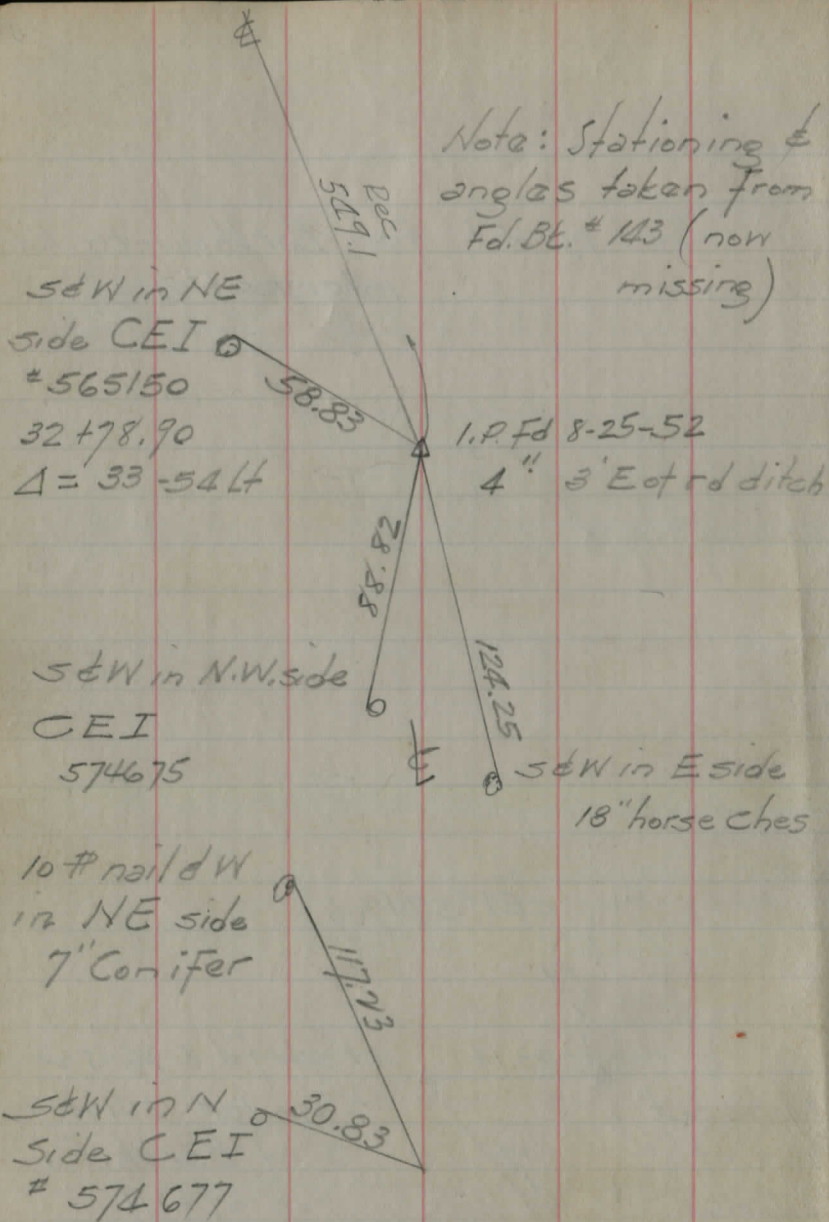 Note: Stationing &
angles taken from
Fd. Bk. # 143 (now
missing)
Rec
549.1
S&W in NE
side CEI
# 565150
32+78.90
Δ = 33-54 Lt
58.83
I.P. Fd 8-25-52
4" 3' E of rd ditch
88.82
124.25
S&W in N.W. side
CEI
574675
℄
S&W in E side
18" horse ches
10 # nail & W
in NE side
7" Conifer
117.23
S&W in N
Side CEI
# 574677
30.83